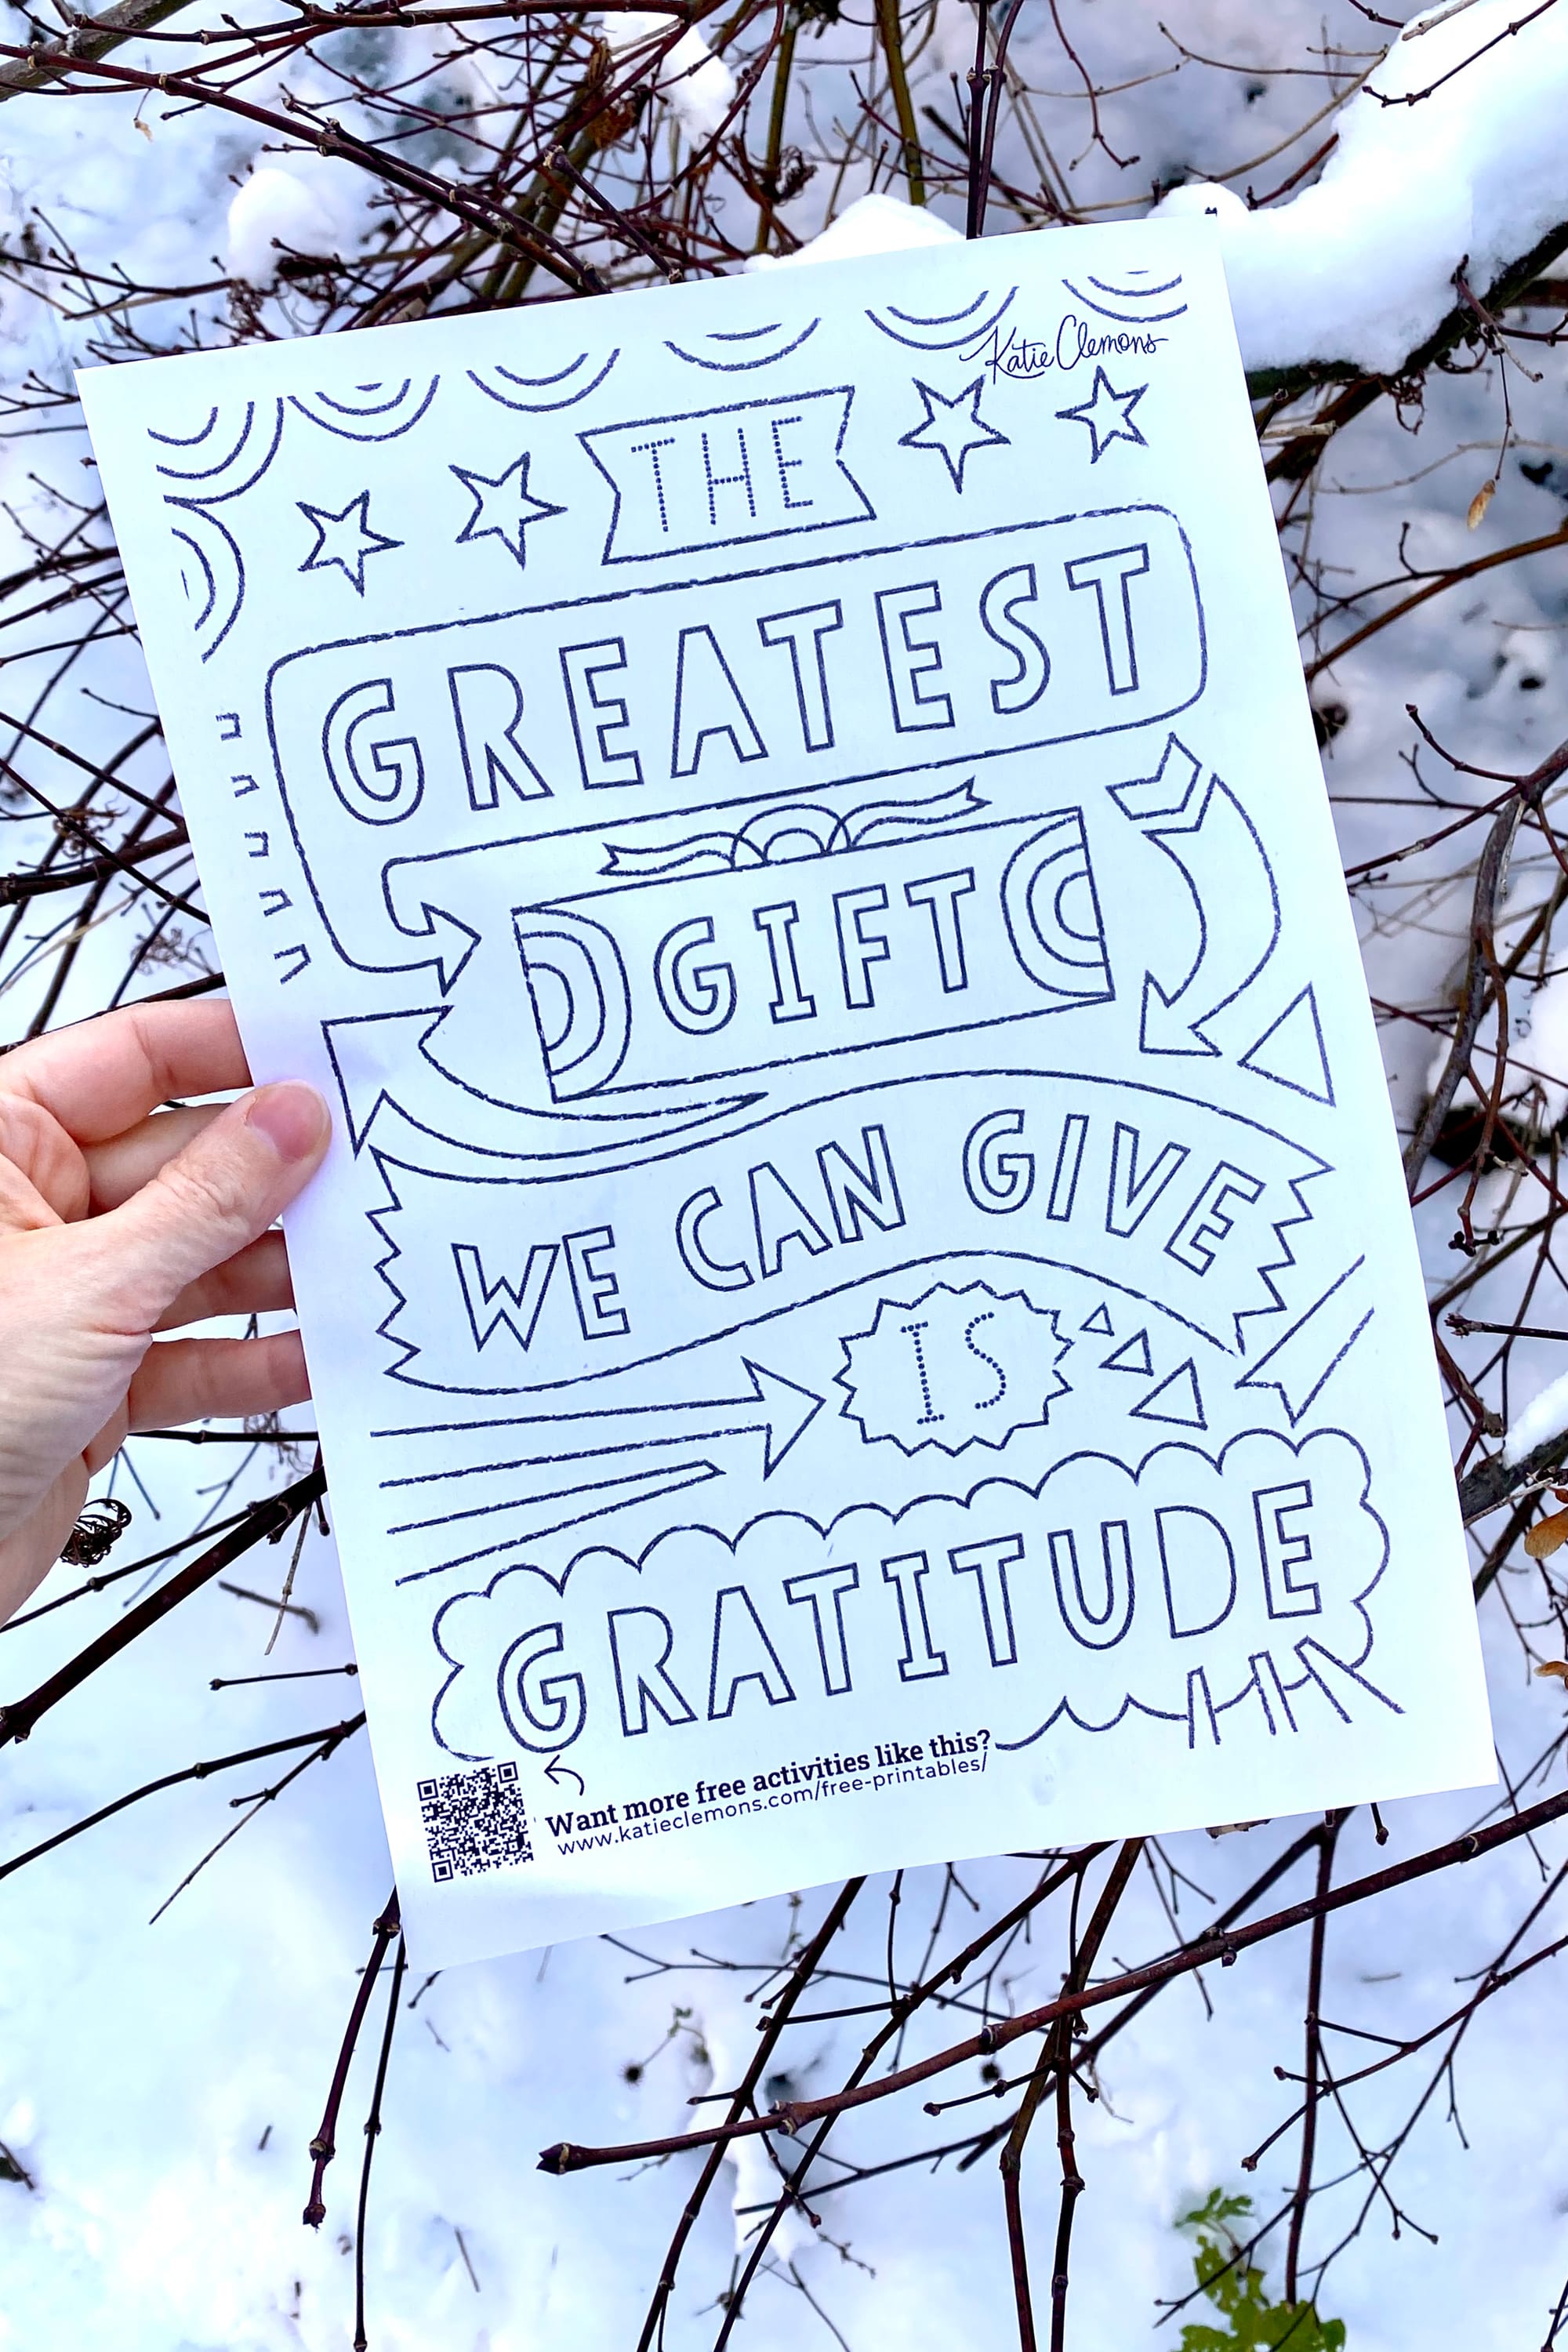 Katie Clemons
THE
GREATEST
GIFT
WE CAN GIVE
IS
GRATITUDE
Want more free activities like this?
www.katieclemons.com/free-printables/